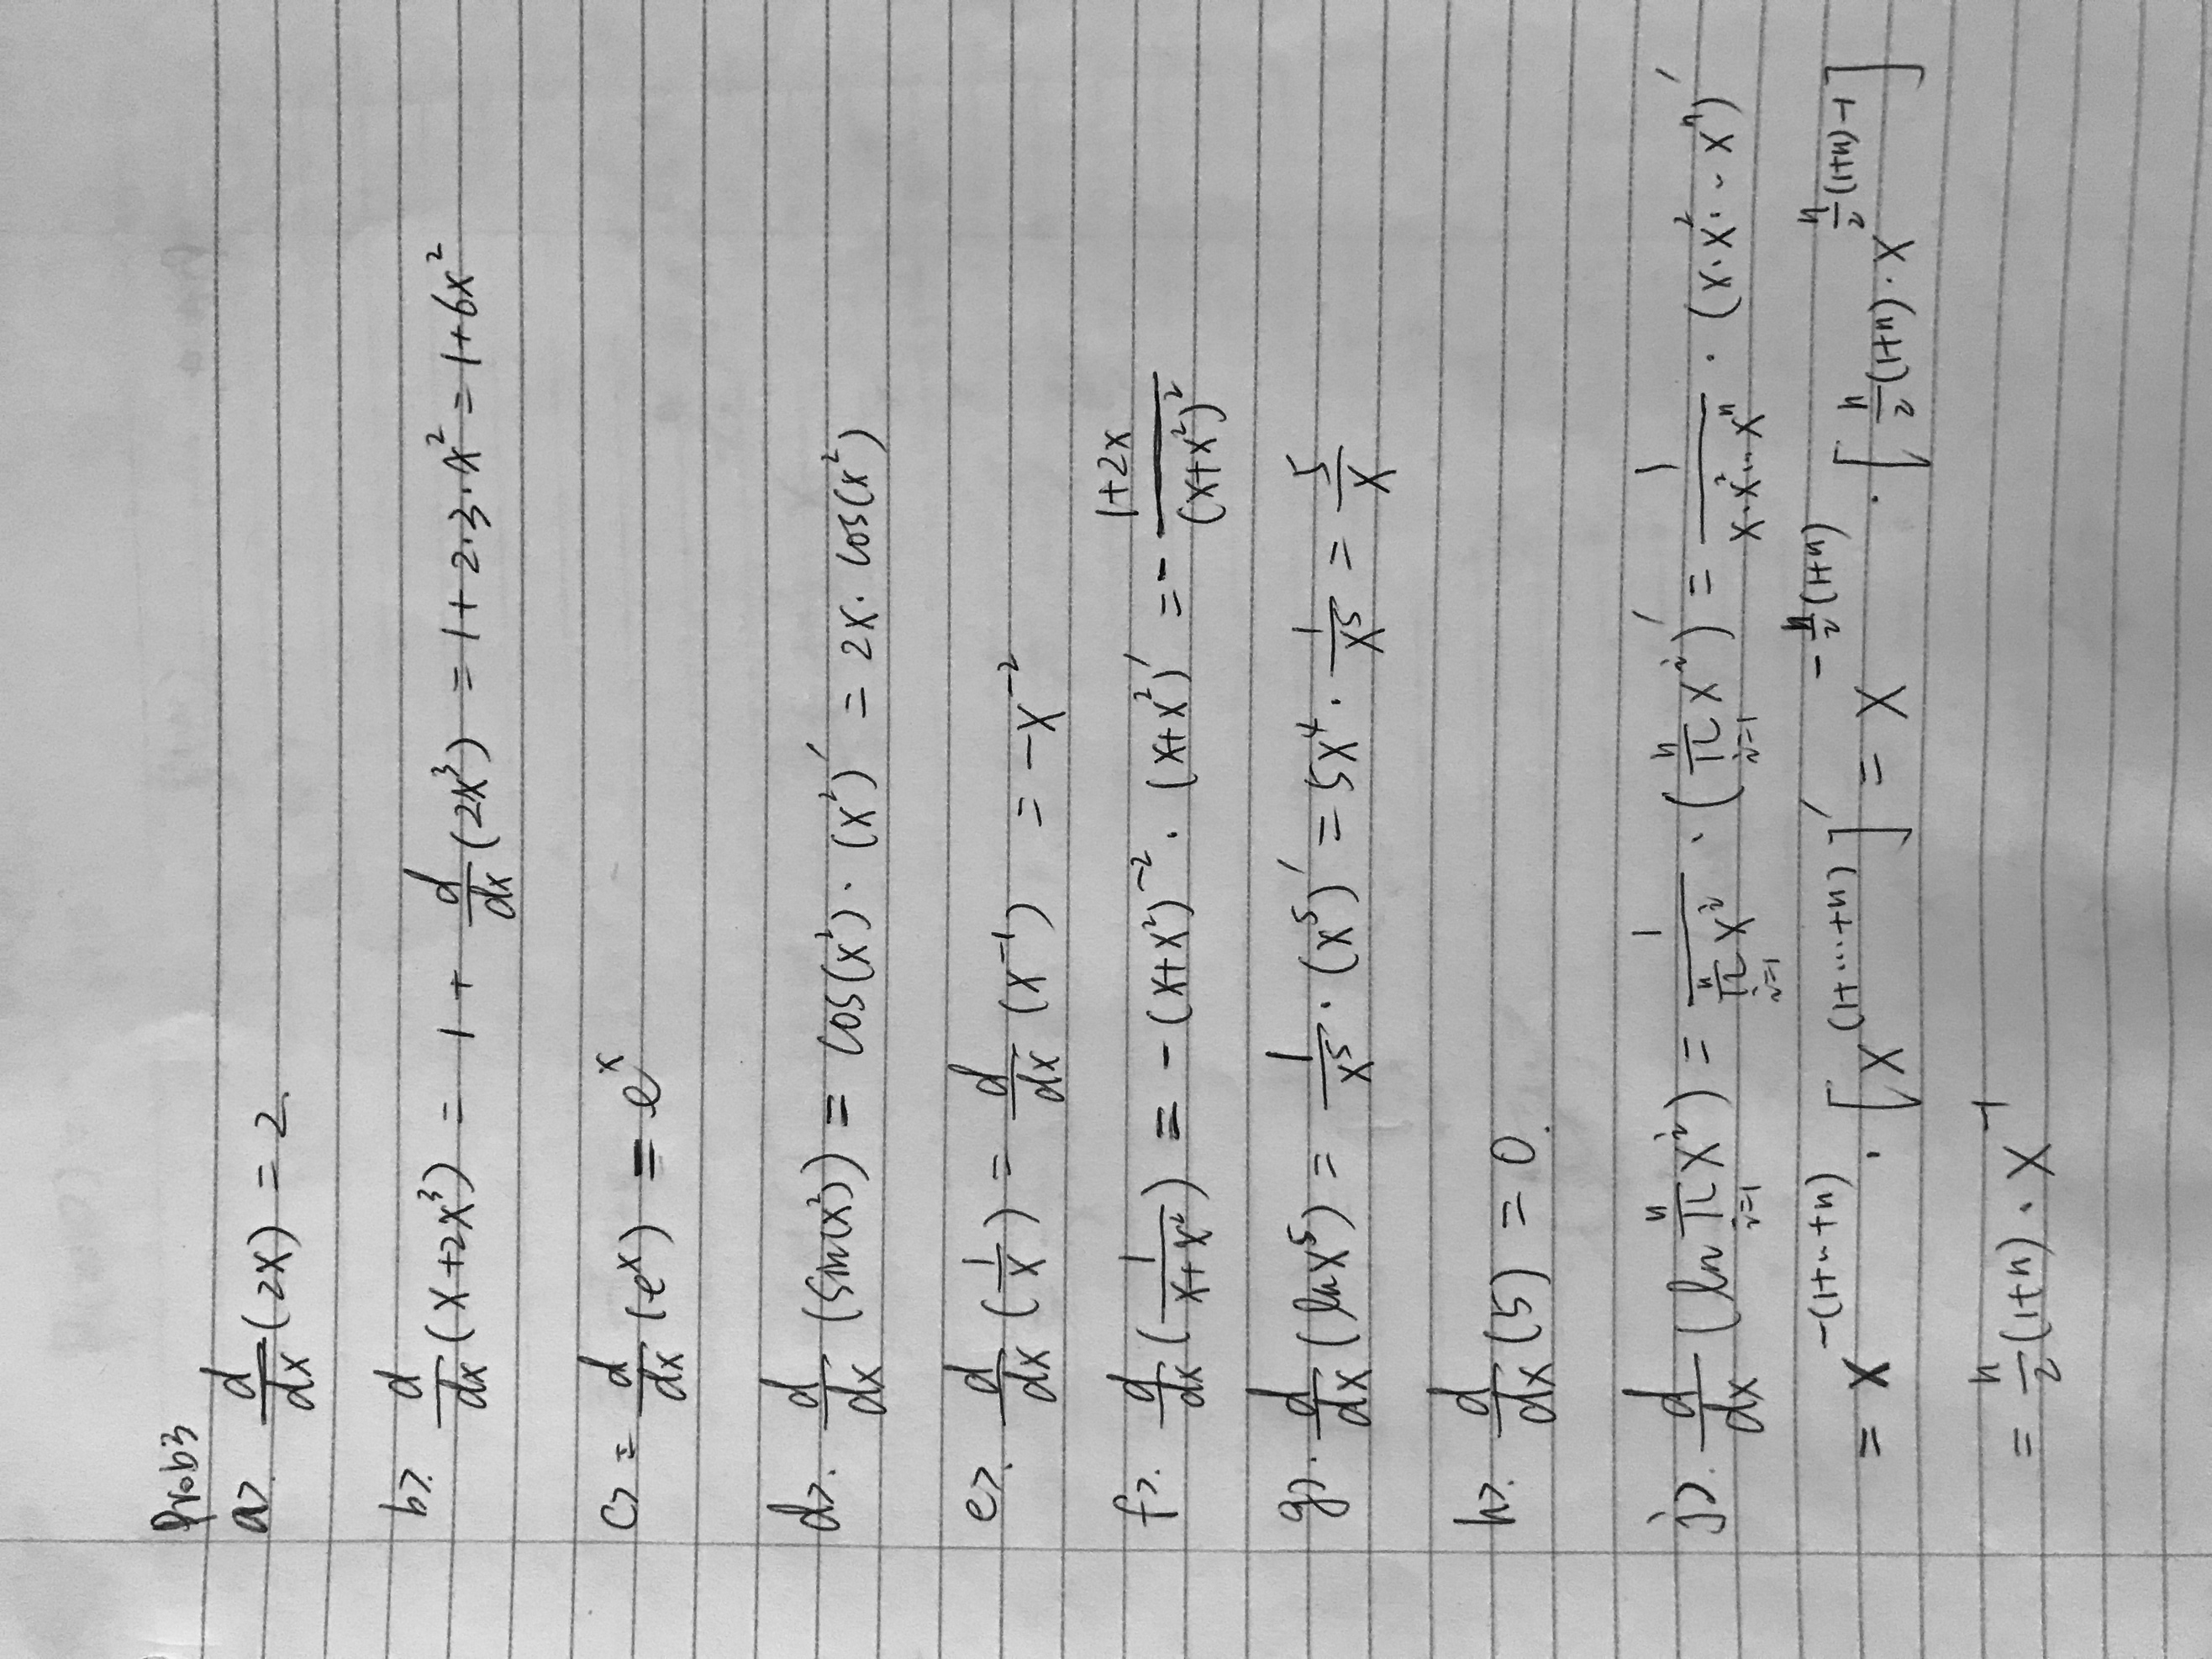 Prob3
a>. d/dx (2x) = 2.
b>. d/dx (x+2x³) = 1 + d/dx (2x³) = 1+2·3·x² = 1+6x²
c> = d/dx (e^x) = e^x
d>. d/dx (sin(x²)) = cos(x²)·(x²)' = 2x·cos(x²)
e>. d/dx (1/x) = d/dx (x⁻¹) = -x⁻²
f>. d/dx (1/(x+x²)) = -(x+x²)⁻²·(x+x²)' = -(1+2x)/(x+x²)²
g>. d/dx (ln x⁵) = 1/x⁵·(x⁵)' = 5x⁴·1/x⁵ = 5/x
h>. d/dx (5) = 0.
j>. d/dx (ln ∏_{i=1}^{n} x^i) = 1/(∏_{i=1}^{n} x^i)·(∏_{i=1}^{n} x^i)' = 1/(x·x²···x^n)·(x·x²···x^n)'
= x^{-(1+~+n)}·[x^{(1+···+n)}]' = x^{-n/2(1+n)}·[n/2(1+n)·x^{n/2(1+n)-1}]
= n/2(1+n)·x⁻¹